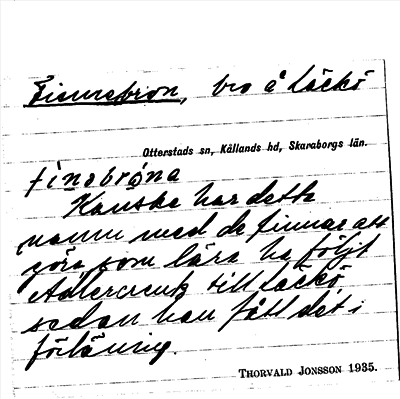 Finnebron, bro å Läckö
Otterstads sn, Kållands hd, Skaraborgs län.
finebróna
Kanske har detta
namn med de finnar att
göra, som lära ha följt
Adlercreutz till Läckö,
sedan han fått det i
förläning.
THORVALD JONSSON 1935.